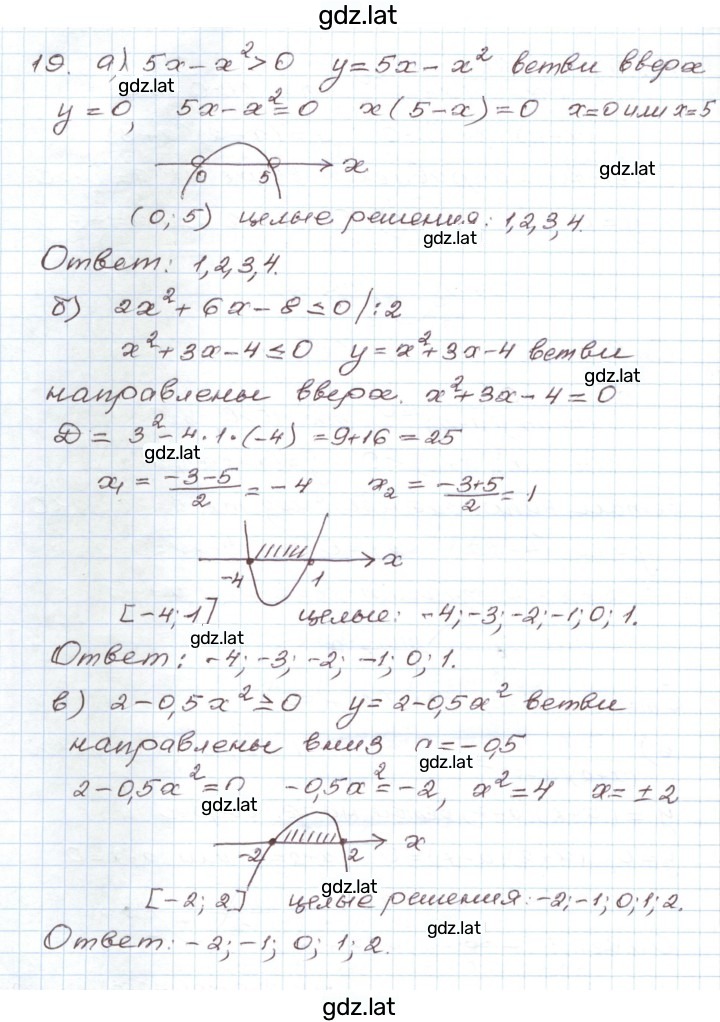 gdz.lat
19. а) 5x - x² > 0 y = 5x - x² ветви вверх
gdz.lat
y = 0, 5x - x² = 0 x(5 - x) = 0 x = 0 или x = 5
0 5 x
gdz.lat
(0; 5) целые решения: 1, 2, 3, 4.
gdz.lat
Ответ: 1, 2, 3, 4.
б) 2x² + 6x - 8 ≤ 0 /:2
x² + 3x - 4 ≤ 0 y = x² + 3x - 4 ветви
gdz.lat
направлены вверх. x² + 3x - 4 = 0
D = 3² - 4·1·(-4) = 9 + 16 = 25
gdz.lat
x₁ = (-3-5)/2 = -4 x₂ = (-3+5)/2 = 1
-4 1 x
[-4; 1] целые: -4; -3; -2; -1; 0; 1.
gdz.lat
Ответ: -4; -3; -2; -1; 0; 1.
в) 2 - 0,5x² ≥ 0 y = 2 - 0,5x² ветви
направлены вниз a = -0,5
gdz.lat
2 - 0,5x² = 0 -0,5x² = -2, x² = 4 x = ±2
gdz.lat
-2 2 x
gdz.lat
[-2; 2] целые решения: -2; -1; 0; 1; 2.
gdz.lat
Ответ: -2; -1; 0; 1; 2.
gdz.lat